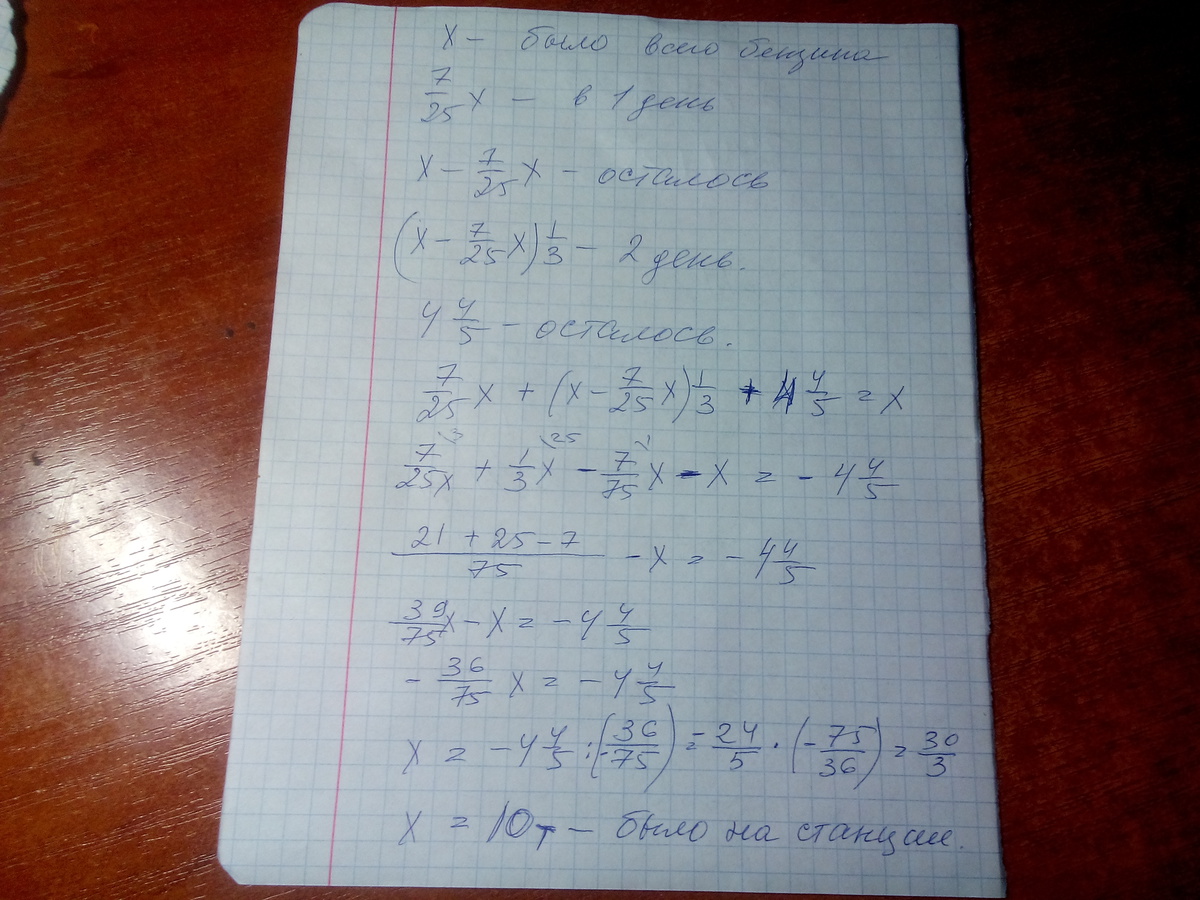 x – было всего бензина
7/25 x – в 1 день
x – 7/25 x – осталось
(x – 7/25 x) 1/3 – 2 день.
4 4/5 – осталось.
7/25 x + (x – 7/25 x) 1/3 + 4 4/5 = x
7/25 x + 1/3 x \25 – 7/75 x \1 – x = – 4 4/5
21 + 25 – 7 / 75 – x = – 4 4/5
39/75 x – x = – 4 4/5
– 36/75 x = – 4 4/5
x = – 4 4/5 : (– 36/75) = – 24/5 · (– 75/36) = 30/3
x = 10т – было на станции.